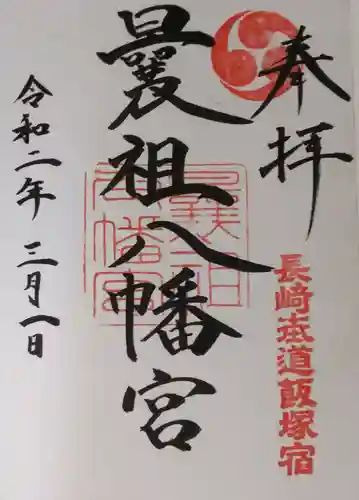 奉拝
長崎街道飯塚宿
曩祖八幡宮
令和二年 三月一日